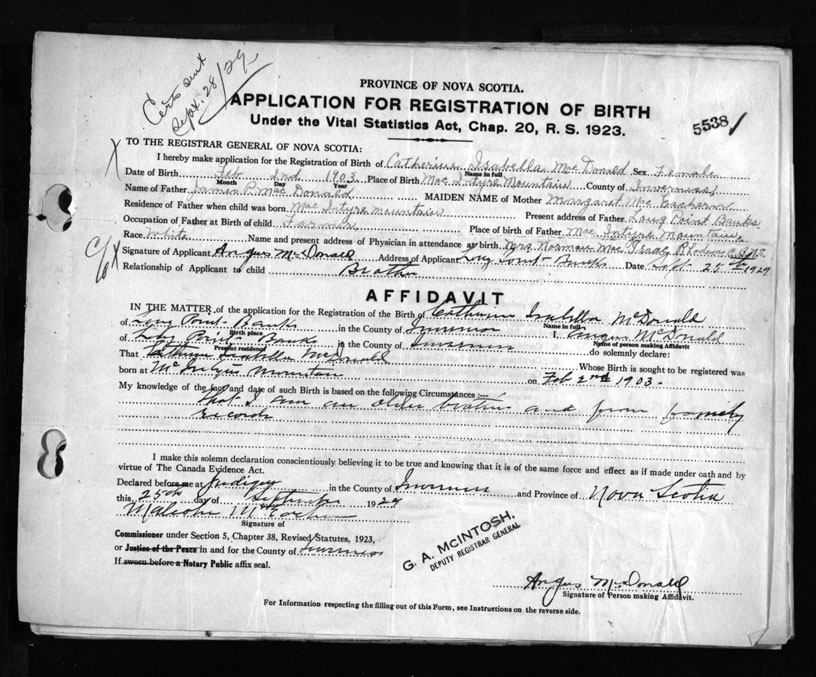 Certs sent
Sept. 28/29
PROVINCE OF NOVA SCOTIA.
APPLICATION FOR REGISTRATION OF BIRTH
Under the Vital Statistics Act, Chap. 20, R. S. 1923.
5538
TO THE REGISTRAR GENERAL OF NOVA SCOTIA:
I hereby make application for the Registration of Birth of Catherine Isabella MacDonald Sex Female
Name in full
Date of Birth Feb 2nd 1903 Place of Birth MacIntyre Mountain County of Inverness
Month Day Year
Name of Father James P. MacDonald MAIDEN NAME of Mother Margaret MacEachern
Residence of Father when child was born MacIntyre Mountain Present address of Father Long Point Banks
Occupation of Father at Birth of child Farmer Place of birth of Father MacIntyre Mountain
Race White Name and present address of Physician in attendance at birth Mrs Norman Mac
Signature of Applicant Angus McDonald Address of Applicant Long Point Banks Date Sept. 25th 1929
c/o
Relationship of Applicant to child Brother
AFFIDAVIT
IN THE MATTER of the application for the Registration of the Birth of Catherine Isabella McDonald
Name in full
of Long Point Banks in the County of Inverness I, Angus McDonald
Birth place Name of person making Affidavit
of Long Point Banks in the County of Inverness do solemnly declare:
Present residence
That Catherine Isabella McDonald Whose Birth is sought to be registered was
born at McIntyre Mountain on Feb 2nd 1903.
My knowledge of the fact and date of such Birth is based on the following Circumstances :—
that I am an older brother and from family
records
I make this solemn declaration conscientiously believing it to be true and knowing that it is of the same force and effect as if made under oath and by
virtue of The Canada Evidence Act.
Declared before me at Judique in the County of Inverness and Province of Nova Scotia
this 25th day of September 1929
Malcolm McEachern
Signature of
Commissioner under Section 5, Chapter 38, Revised Statutes, 1923,
or Justice of the Peace in and for the County of Inverness
If sworn before a Notary Public affix seal.
G. A. McINTOSH,
DEPUTY REGISTRAR GENERAL
Angus McDonald
Signature of Person making Affidavit.
For Information respecting the filling out of this Form, see Instructions on the reverse side.